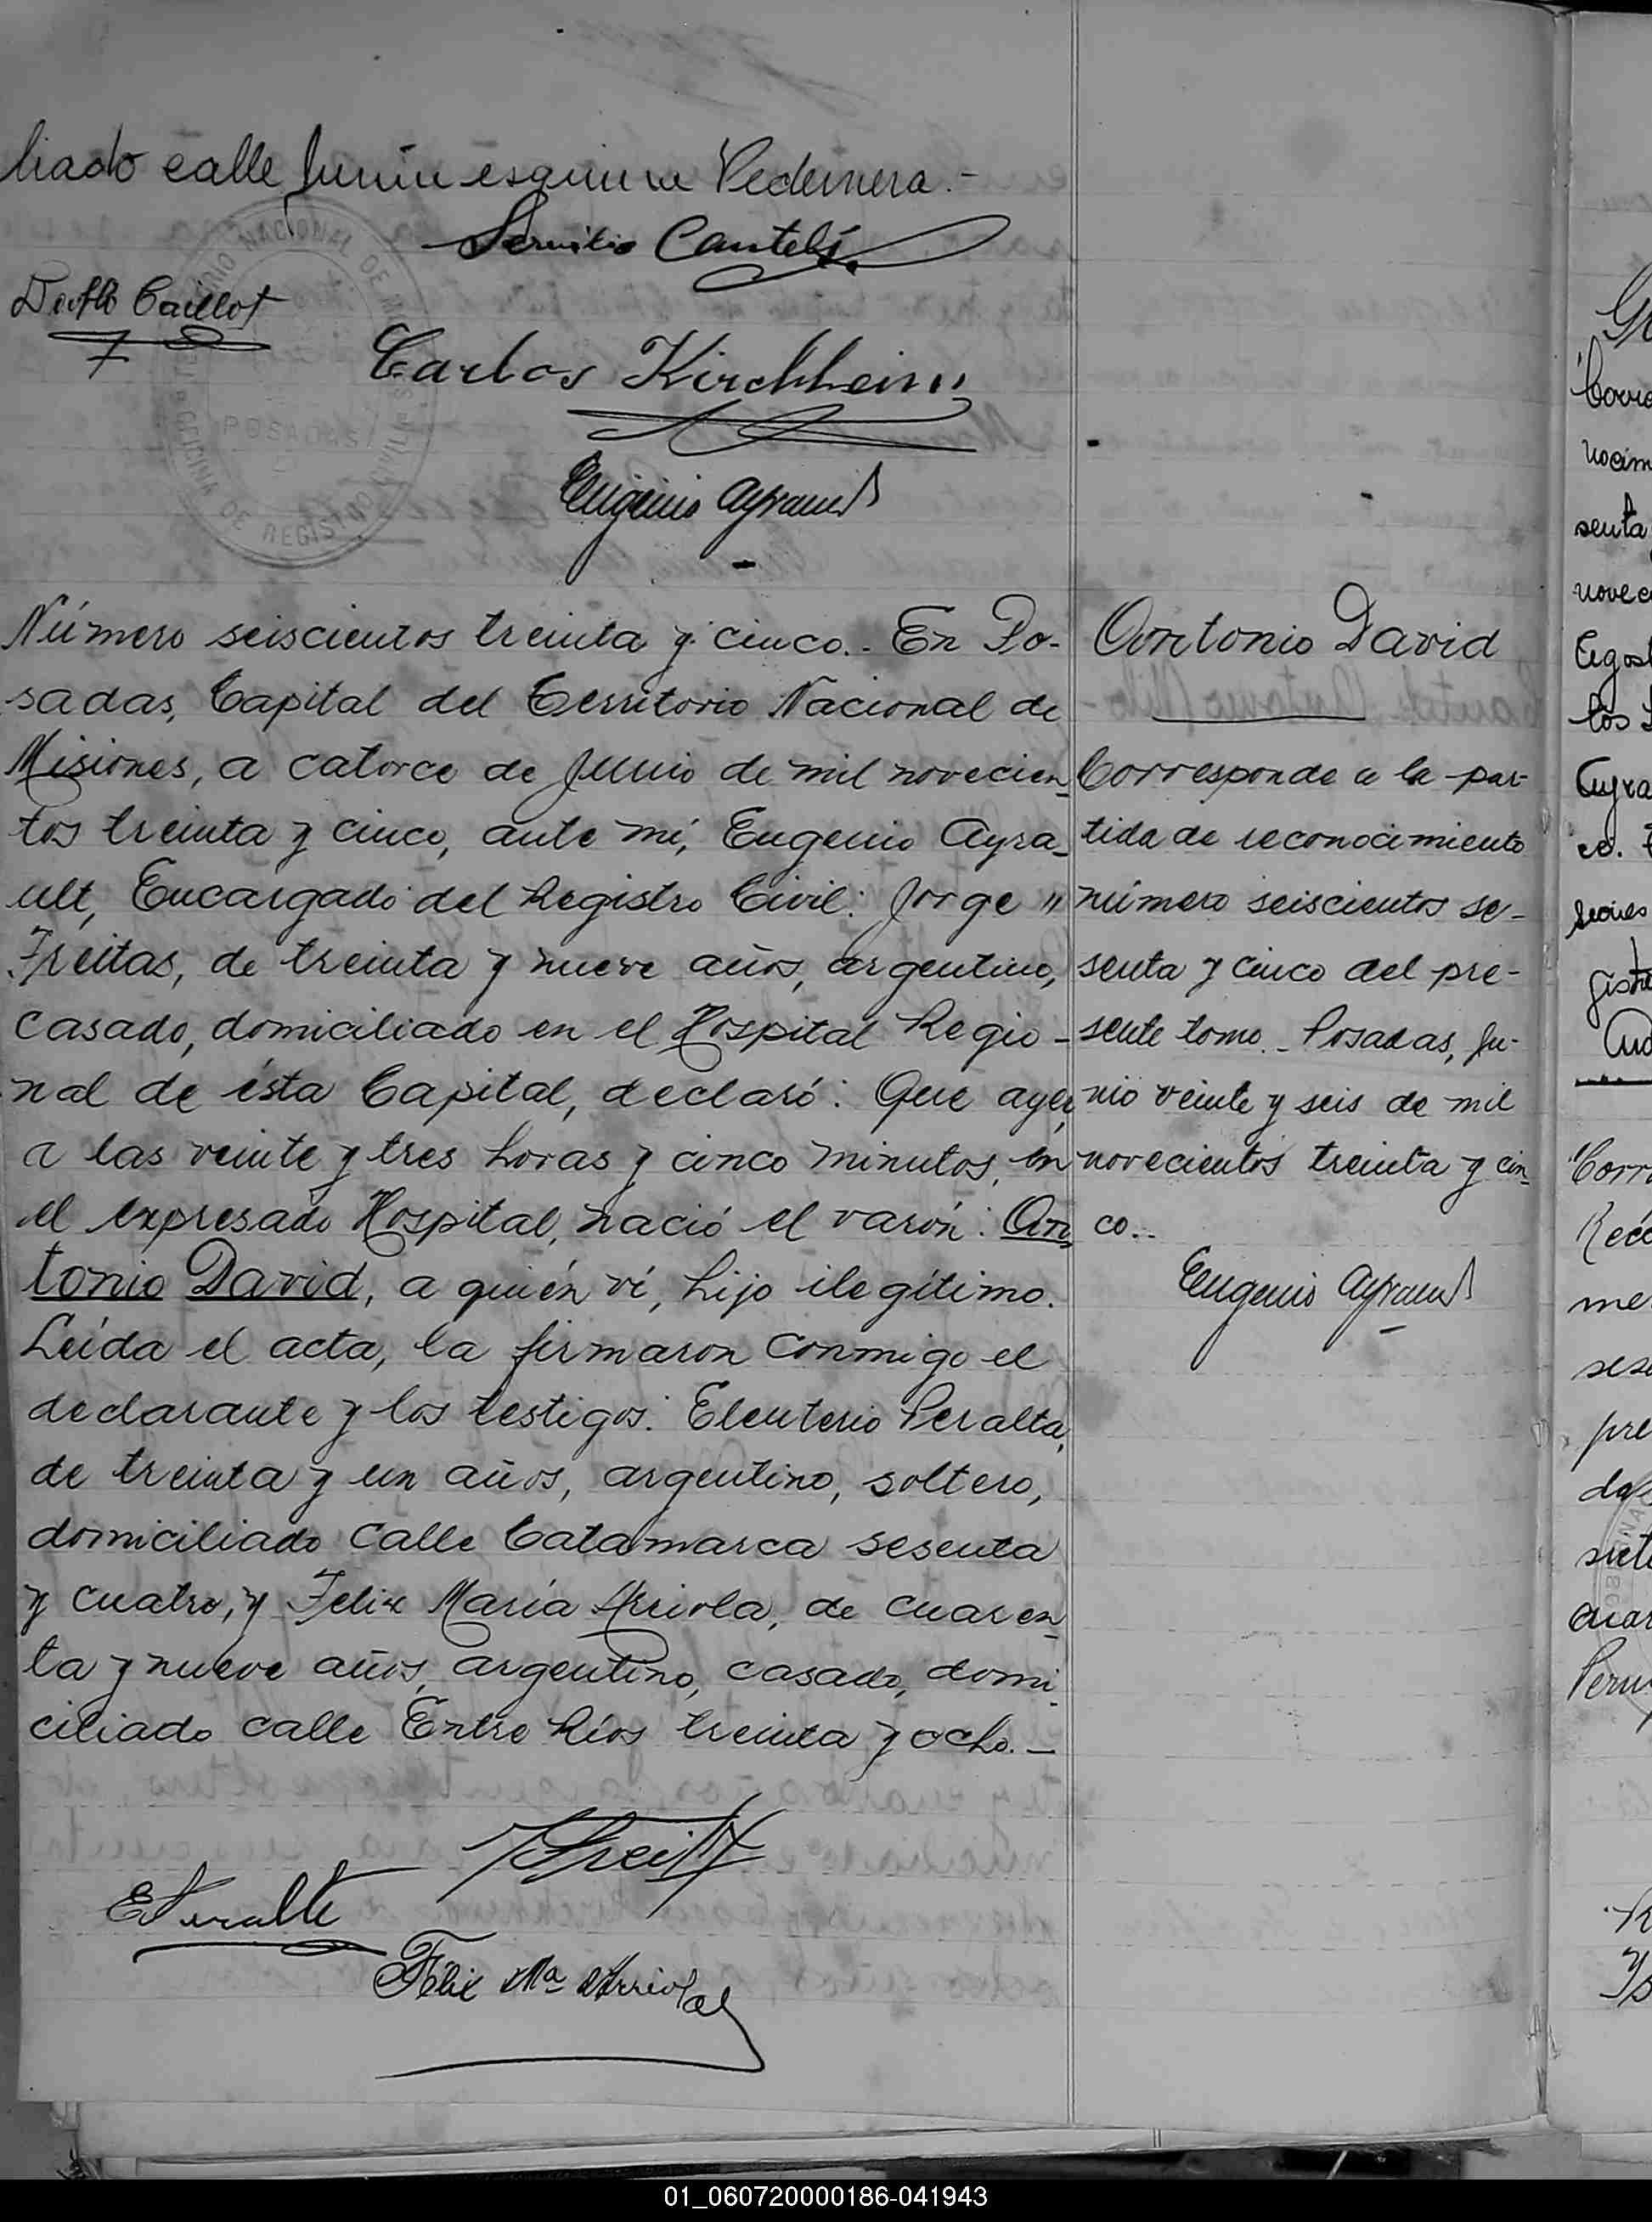 liado calle Junín esquina Pedernera.-
Servilio
Caillot
Carlos Kirchheim
Eugenio Ayrault
NACIONAL DE
POSADAS
OFICINA DE REGISTRO CIVIL
Número seiscientos treinta y cinco.- En Po-
sadas, Capital del Territorio Nacional de
Misiones, a catorce de Junio de mil novecien-
tos treinta y cinco, ante mí, Eugenio Ayra-
ult, Encargado del Registro Civil: Jorge "
Freitas, de treinta y nueve años, argentino,
casado, domiciliado en el Hospital Regio-
nal de ésta Capital, declaró: Que ayer,
a las veinte y tres horas y cinco minutos, en
el expresado Hospital, nació el varón: An-
tonio David, a quién ví, hijo ilegítimo.
Leída el acta, la firmaron conmigo el
declarante y los testigos: Eleuterio Peralta,
de treinta y un años, argentino, soltero,
domiciliado calle Catamarca sesenta
y cuatro, y Felix María Arriola, de cuaren-
ta y nueve años, argentino, casado, domi-
ciliado calle Entre Ríos treinta y ocho.-
JFreitas
EPeralta
Félix Mª Arriola
Antonio David
Corresponde a la par-
tida de reconocimiento
número seiscientos se-
senta y cinco del pre-
sente tomo.- Posadas, Ju-
nio veinte y seis de mil
novecientos treinta y cin-
co.-
Eugenio Ayrault
nocim
senta
novec
los
Ayra
co.
Corr
me
pre
01_060720000186-041943